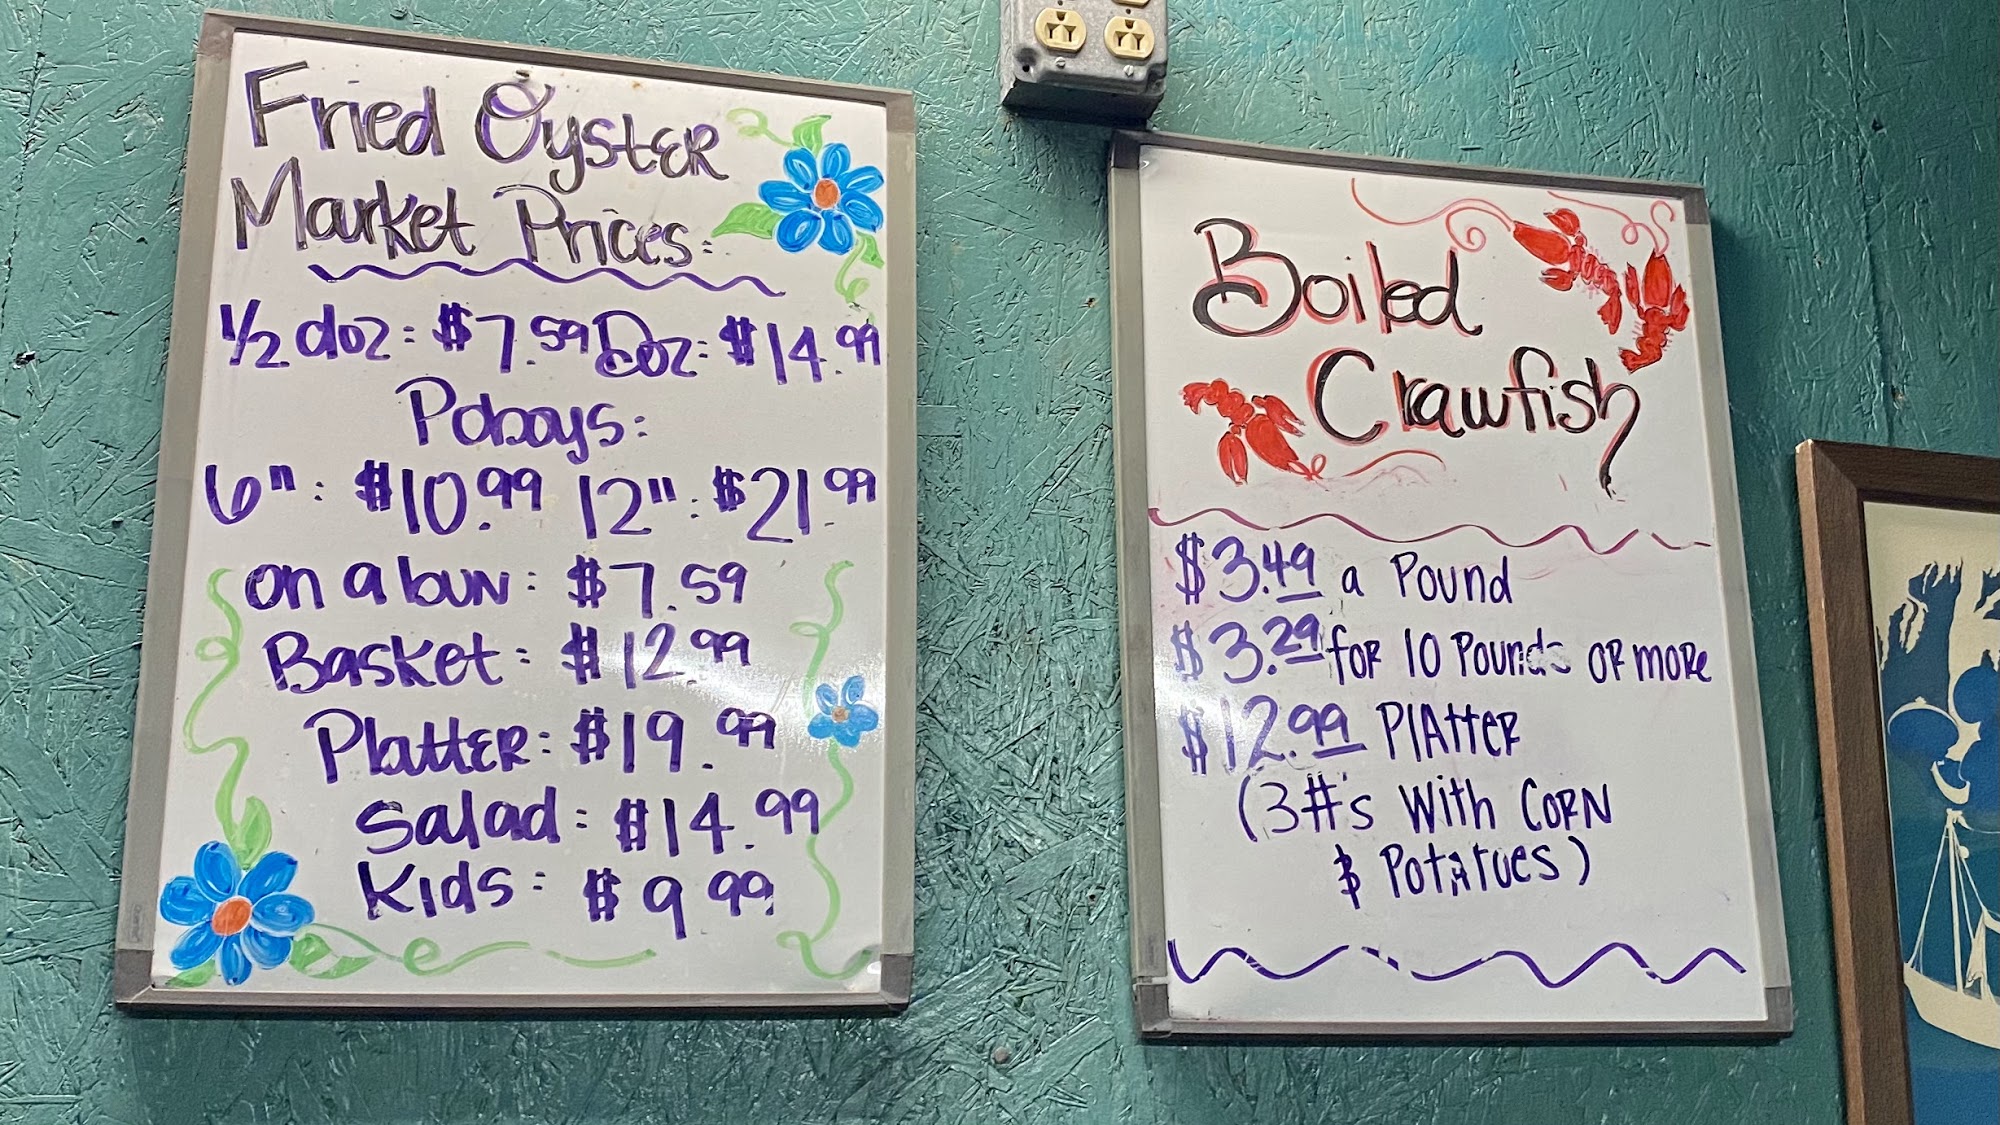 Fried Oyster
Market Prices:
1/2 doz: $7.59 Doz: $14.99
Poboys:
6": $10.99 12": $21.99
on a bun: $7.59
Basket: $12.99
Platter: $19.99
Salad: $14.99
Kids: $9 99
Boiled
Crawfish
$3.49 a Pound
$3.29 for 10 Pounds or more
$12.99 Platter
(3#'s with Corn
& Potatoes)